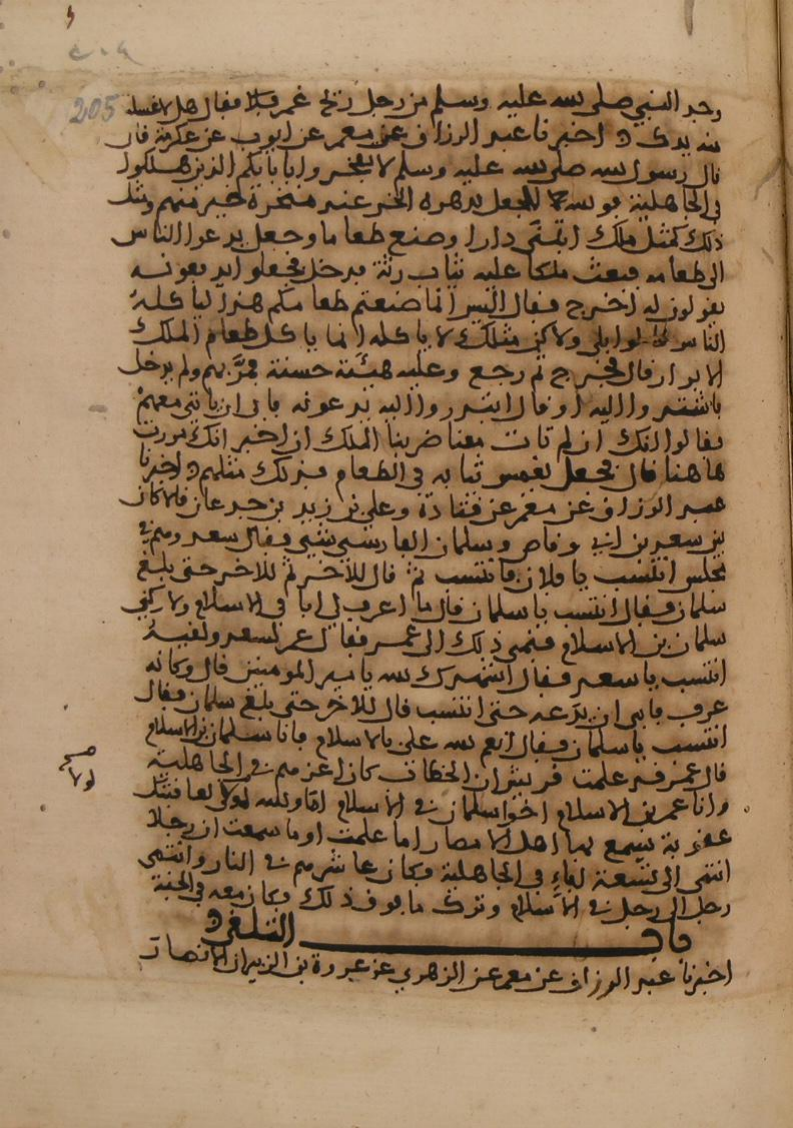 205
وجد النبي صلى الله عليه وسلم من رجل ريح غمر فقال هل لا غسلت
منه يدك اخبرنا عبد الرزاق عن معمر عن ايوب عن عكرمة قال
قال رسول الله صلى الله عليه وسلم لا تفخروا بابايكم الذين هلكوا
في الجاهلية فو الله للجعل يدهده الخر عند منخره خير منهم ومثل
ذلك كمثل ملك ابتنى دارا وصنع طعاما وجعل يدعوا الناس
الى طعامه فبعث ملكا عليه ثياب رثة فدخل فجعلوا يدفعونه
يقولون له اخرج فقال اليس انما صنعتم طعامكم هذا لياكله
الناس قالوا بلى ولاكن مثلك لا ياكله انما ياكل طعام الملك
الابرار قال فخرج ثم رجع وعليه هيئة حسنة فمر بهم ولم يدخل
فاشتدوا اليه او قال ابتدروا اليه يدعونه فابى ان ياتي معهم
فقالوا انك ان لم تات معنا ضربنا الملك ان اخبر انك مررت
هاهنا قال فجعل يغمس ثيابه في الطعام فذلك مثلهم اخبرنا
عبد الرزاق عن معمر عن قتادة وعلي بن زيد بن جدعان قالا كان
بين سعد بن ابي وقاص وسلمان الفارسي شي فقال سعد وهم في
مجلس انتسب يا فلان فانتسب ثم قال للاخر ثم للاخر حتى بلغ
سلمان فقال انتسب يا سلمان قال ما اعرف لي ابا في الاسلام ولاكني
سلمان بن الاسلام فنمى ذلك الى عمر فقال عمر لسعد ولقيه
انتسب يا سعد فقال انشدك الله يا امير المومنين قال وكانه
عرف فابى ان يدعه حتى انتسب قال للاخر حتى بلغ سلمان فقال
انتسب يا سلمان فقال انعم الله علي بالاسلام فانا سلمان بن الاسلام
قال عمر قد علمت قريش ان الخطاب كان اعزهم في الجاهلية
وانا عمر بن الاسلام اخوا سلمان في الاسلام اما والله لولا لعاقبتك
عقوبة يسمع بها اهل الامصار اما علمت او ما سمعت ان رجلا
انتمى الى تسعة اباء في الجاهلية فكان عاشرهم في النار وانتمى
رجل الى رجل في الاسلام وترك ما فوق ذلك فكان معه في الجنة
باب
اخبرنا عبد الرزاق عن معمر عن الزهري عن عروة بن الزبير ان الانصار